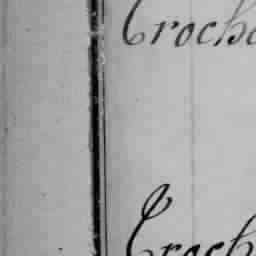 Croche
Croch